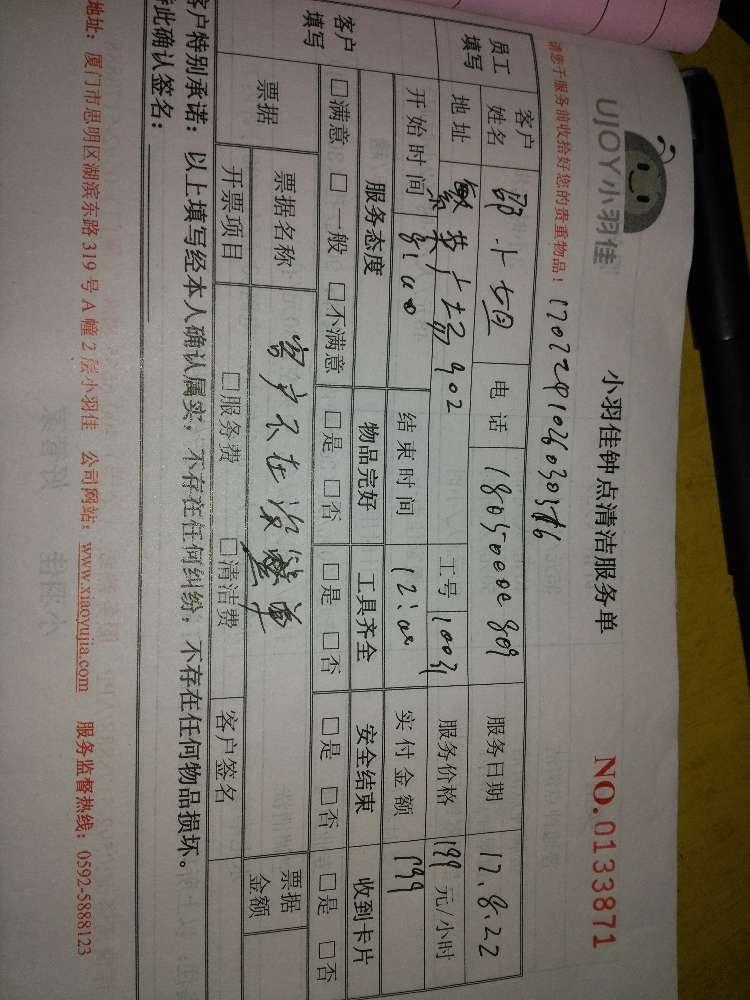 UJOY小羽佳
小羽佳钟点清洁服务单
NO.0133871
请您于服务前收拾好您的贵重物品！
员工填写
客户姓名 电话 服务日期 17.8.22
地址 繁荣广场902 工号 服务价格 199 元/小时
开始时间 8:00 结束时间 12:00 实付金额 199
客户填写
服务态度 物品完好 工具齐全 安全结束 收到卡片
□满意 □一般 □不满意 □是 □否 □是 □否 □是 □否 □是 □否
票据 票据名称 客户不在没签单 票据金额
开票项目 □服务费 □清洁费 客户签名
客户特别承诺：以上填写经本人确认属实，不存在任何纠纷，不存在任何物品损坏。
特此确认签名：
地址：厦门市思明区湖滨东路319号A幢2层小羽佳 公司网站：www.xiaoyujia.com 服务监督热线：0592-5888123